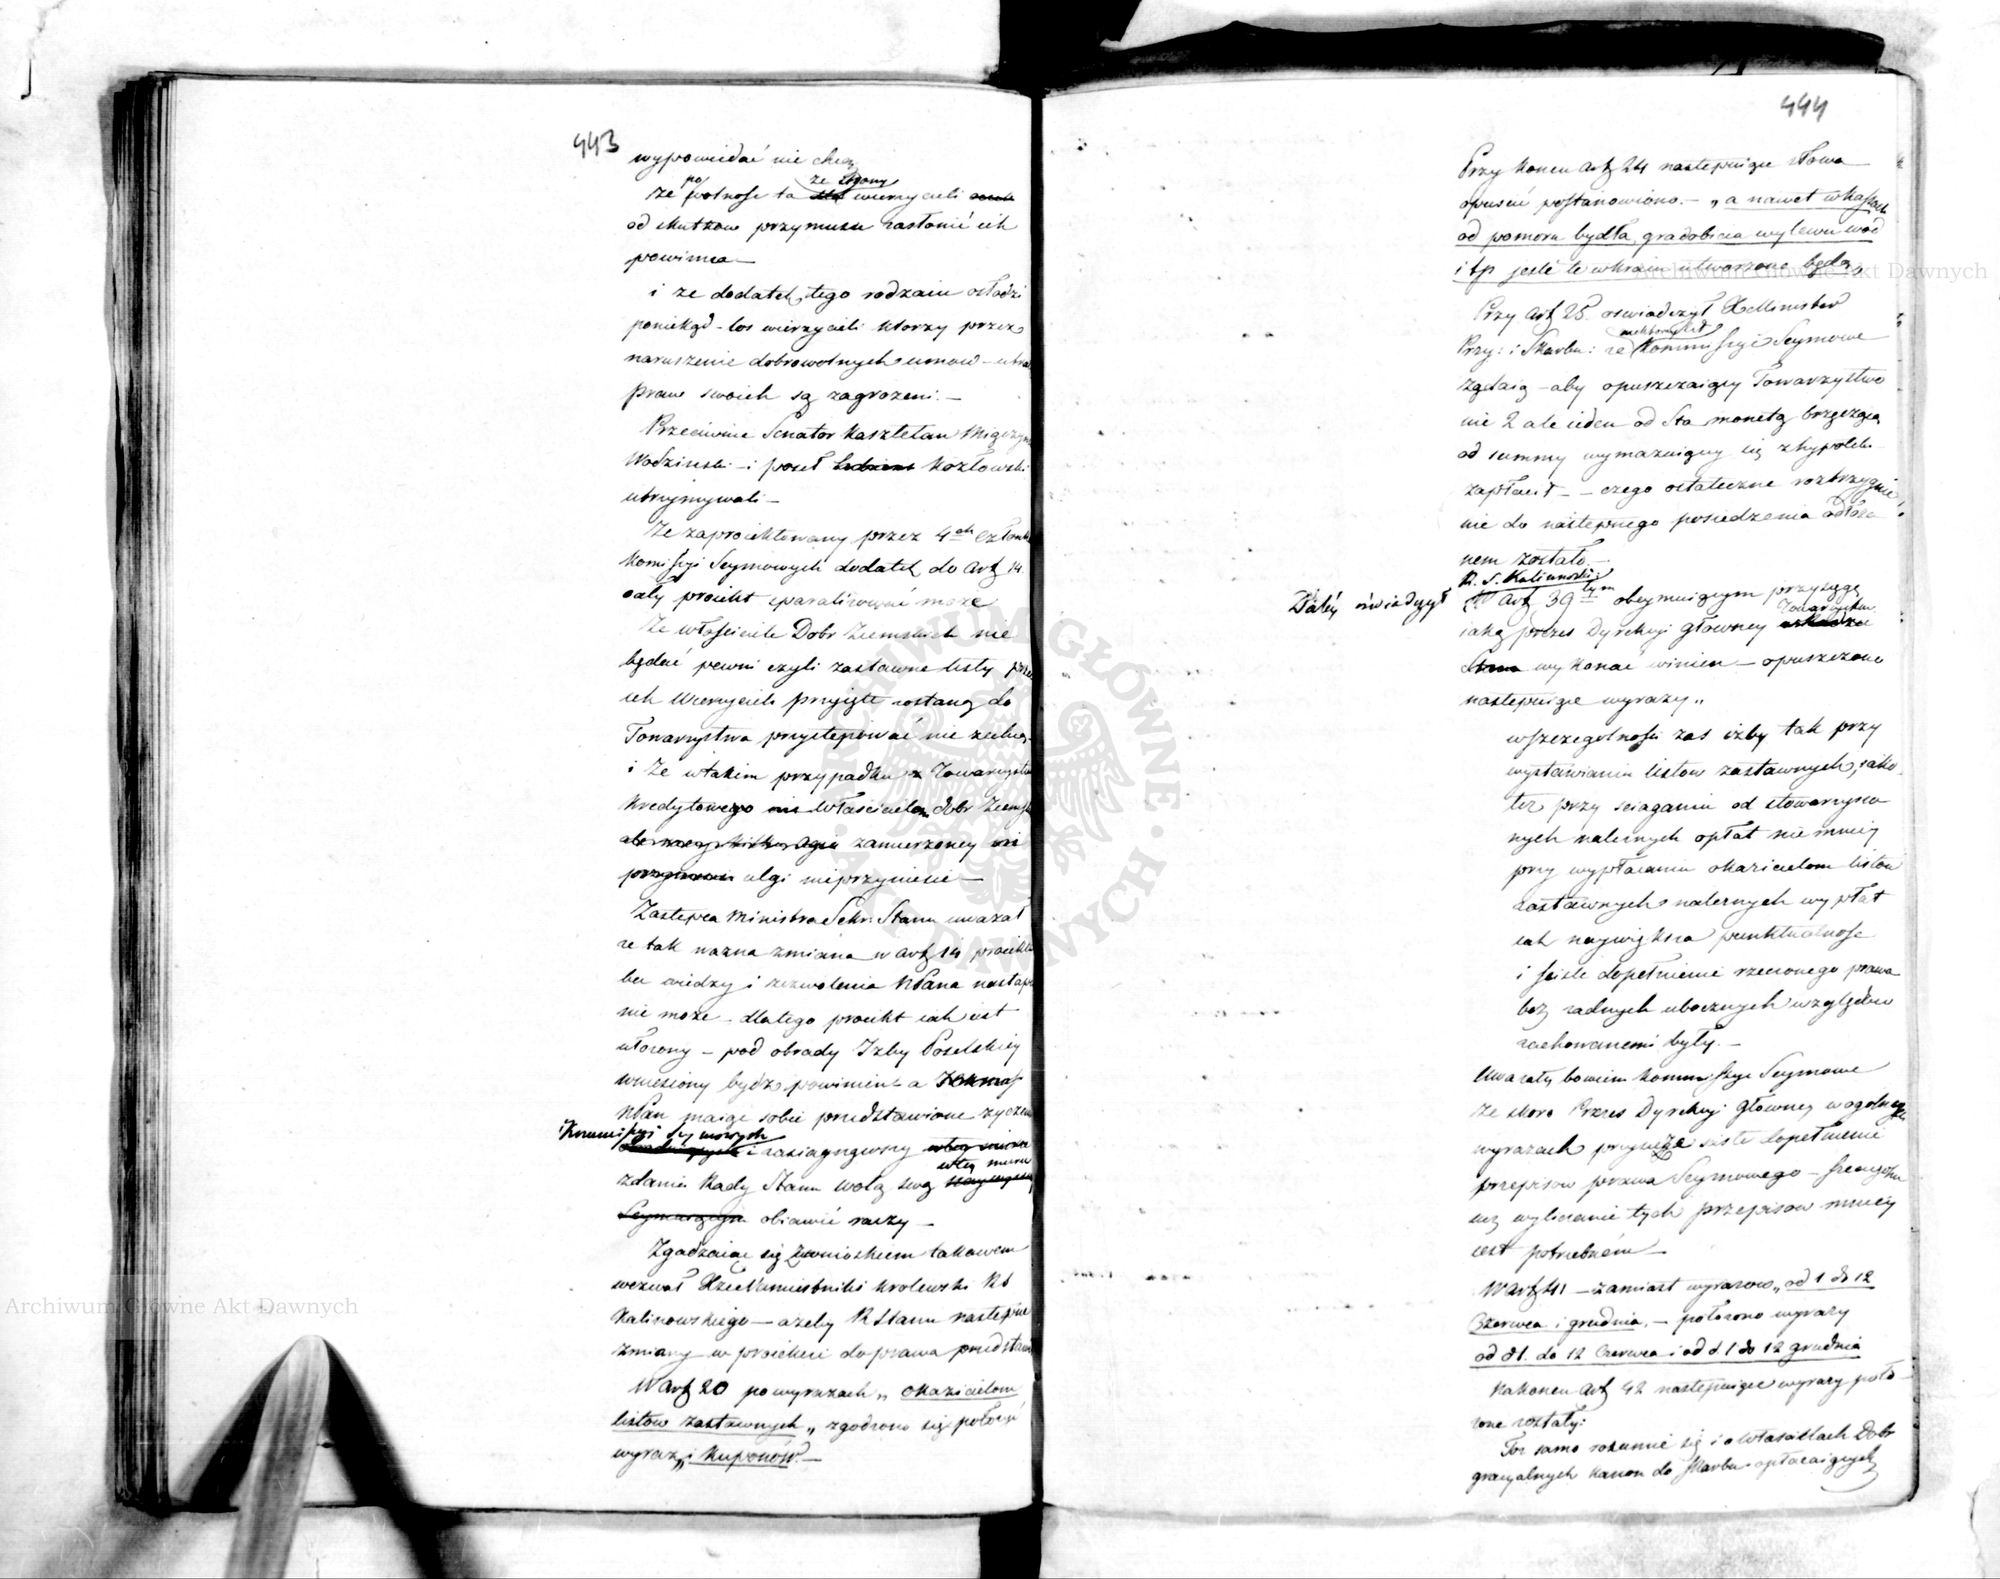 443
wypowiedać nie chcą
że powolność ta ze strony wierzycieli
od skutków przymusu zasłonić ich
powinna —
i że dodatek tego rodzaiu osłodzi
poniekąd - los wierzycieli którzy przez
naruszenie dobrowolnych umow -
praw swoich są zagrożeni. —
Przeciwnie Senator Kasztelan Miączyński
Wodziński - i poseł Kozłowski
utrzymywali —
Że zaproiektowany przez 4ch Członków
Kommissyi Seymowych dodatek do Art 14
cały proiekt sparaliżować może
Że właściciele Dobr Ziemskich nie
będąc pewni czyli zastawne listy przez
ich Wierzycieli przyięte zostaną do
Towarzystwa przystępować nie zechcą -
i że w takim przypadku z Towarzystwa
Kredytowego właścicielom dobr Ziemsk
zamierzoney
ulgi nieprzyniesie —
Zastępca Ministra Sekr. Stanu uważał
że tak ważna zmiana w Art 14 proiektu
bez wiedzy i zezwolenia NPana nastąpić
nie może - dlatego proiekt iak iest
ułożony - pod obrady Izby Poselskiey
wniesiony bydź powinien - a
NPan maiąc sobie przedstawione życzenia
Kommissyi Seymowych i zasiągnąwszy
w tey mierze
zdania Rady Stanu wolą swą
obiawić raczy —
Zgadzaiąc się z wnioskiem takowem
wezwał Xże Namiestnik Krolewski RS
Kalinowskiego — ażeby R Stanu następne
zmiany w proiekcie do prawa przedstawił
W Art 20 po wyrazach „ okazicielom
listow zastawnych „ zgodzono się położyć
wyraz „i Kuponów". —
444
Przy końcu Art 24 następuiące słowa
opuścić postanowiono. — „a nawet w Kassach
od pomoru bydła, gradobicia wylewu wód
i t p jeśli te w kraiu utworzone będą,
Przy Art 25. oswiadczył X Minister
Przy: i Skarbu: że Kommissyi Seymowe
żądaią - aby opuszczaiący Towarzystwo
nie 2 ale ieden od Sta monetą brzęczącą
od summy wymazuiącey się z hypoteki
zapłacił — czego ostateczne rozstrzygnie
nie do następnego posiedzenia odłożo
nem zostało. —
Daléy oświadczył
R. S. Kalinowski:
że w Art 39tym obeymuiącym przysięgę
iaką prezes Dyrekcyi Głowney Towarzystwa
wykonać winien — opuszczono
następuiące wyrazy „
w szczegolności zaś iżby tak przy
wystawianiu listow zastawnych, iako
też przy sciąganiu od stowarzyszo
nych należnych opłat nie mniey
przy wypłacaniu okazicielom listow
zastawnych należnych wypłat
iak naywiększa punktualność
i ścisłe dopełnienie rzeczonego prawa
bez żadnych ubocznych względow
zachowanemi były. —
Uważały bowiem Kommissye Seymowe
że skoro Prezes Dyrekcyi Głowney w ogolnych
wyrazach przysięże ścisłe dopełnienie
przepisow prawa Seymowego —
wyliczanie tych przepisow mniey
iest potrzebném —
W Art 41 — zamiast wyrazow „ od 1 do 12
Czerwca i grudnia, — położono wyrazy
od d 1. do 12 Czerwca i od d. 1 do 12 grudnia
Nakoncu Art 42 następuiące wyrazy poło-
żone zostały:
Toż samo rozumie się i o Właścicielach Dobr
gracyalnych kanon do Skarbu opłacaiących
Archiwum Główne Akt Dawnych
Archiwum Główne Akt Dawnych
ARCHIWUM GŁÓWNE AKT DAWNYCH